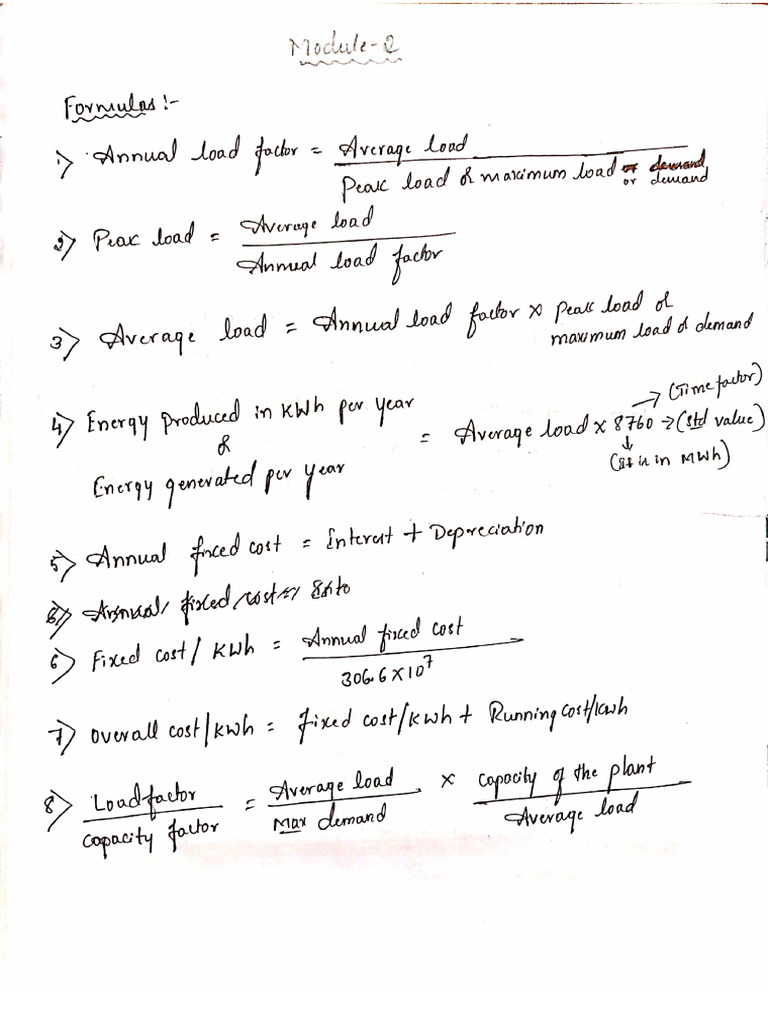 Module-2
Formulas :-
1) Annual load factor = Average load / Peak load or maximum load or demand
2) Peak load = Average load / Annual load factor
3) Average load = Annual load factor × Peak load or
maximum load or demand
4) Energy produced in kWh per year
or
Energy generated per year
= Average load × 8760 → (std value)
→ (Time factor)
↓
(It is in MWh)
5) Annual fixed cost = Interest + Depreciation
6) Annual fixed cost
6) Fixed cost / KWh = Annual fixed cost / 306.6 × 10⁷
7) Overall cost/kWh = fixed cost/kWh + Running cost/kWh
8) Load factor / Capacity factor = Average load / Max demand × Capacity of the plant / Average load